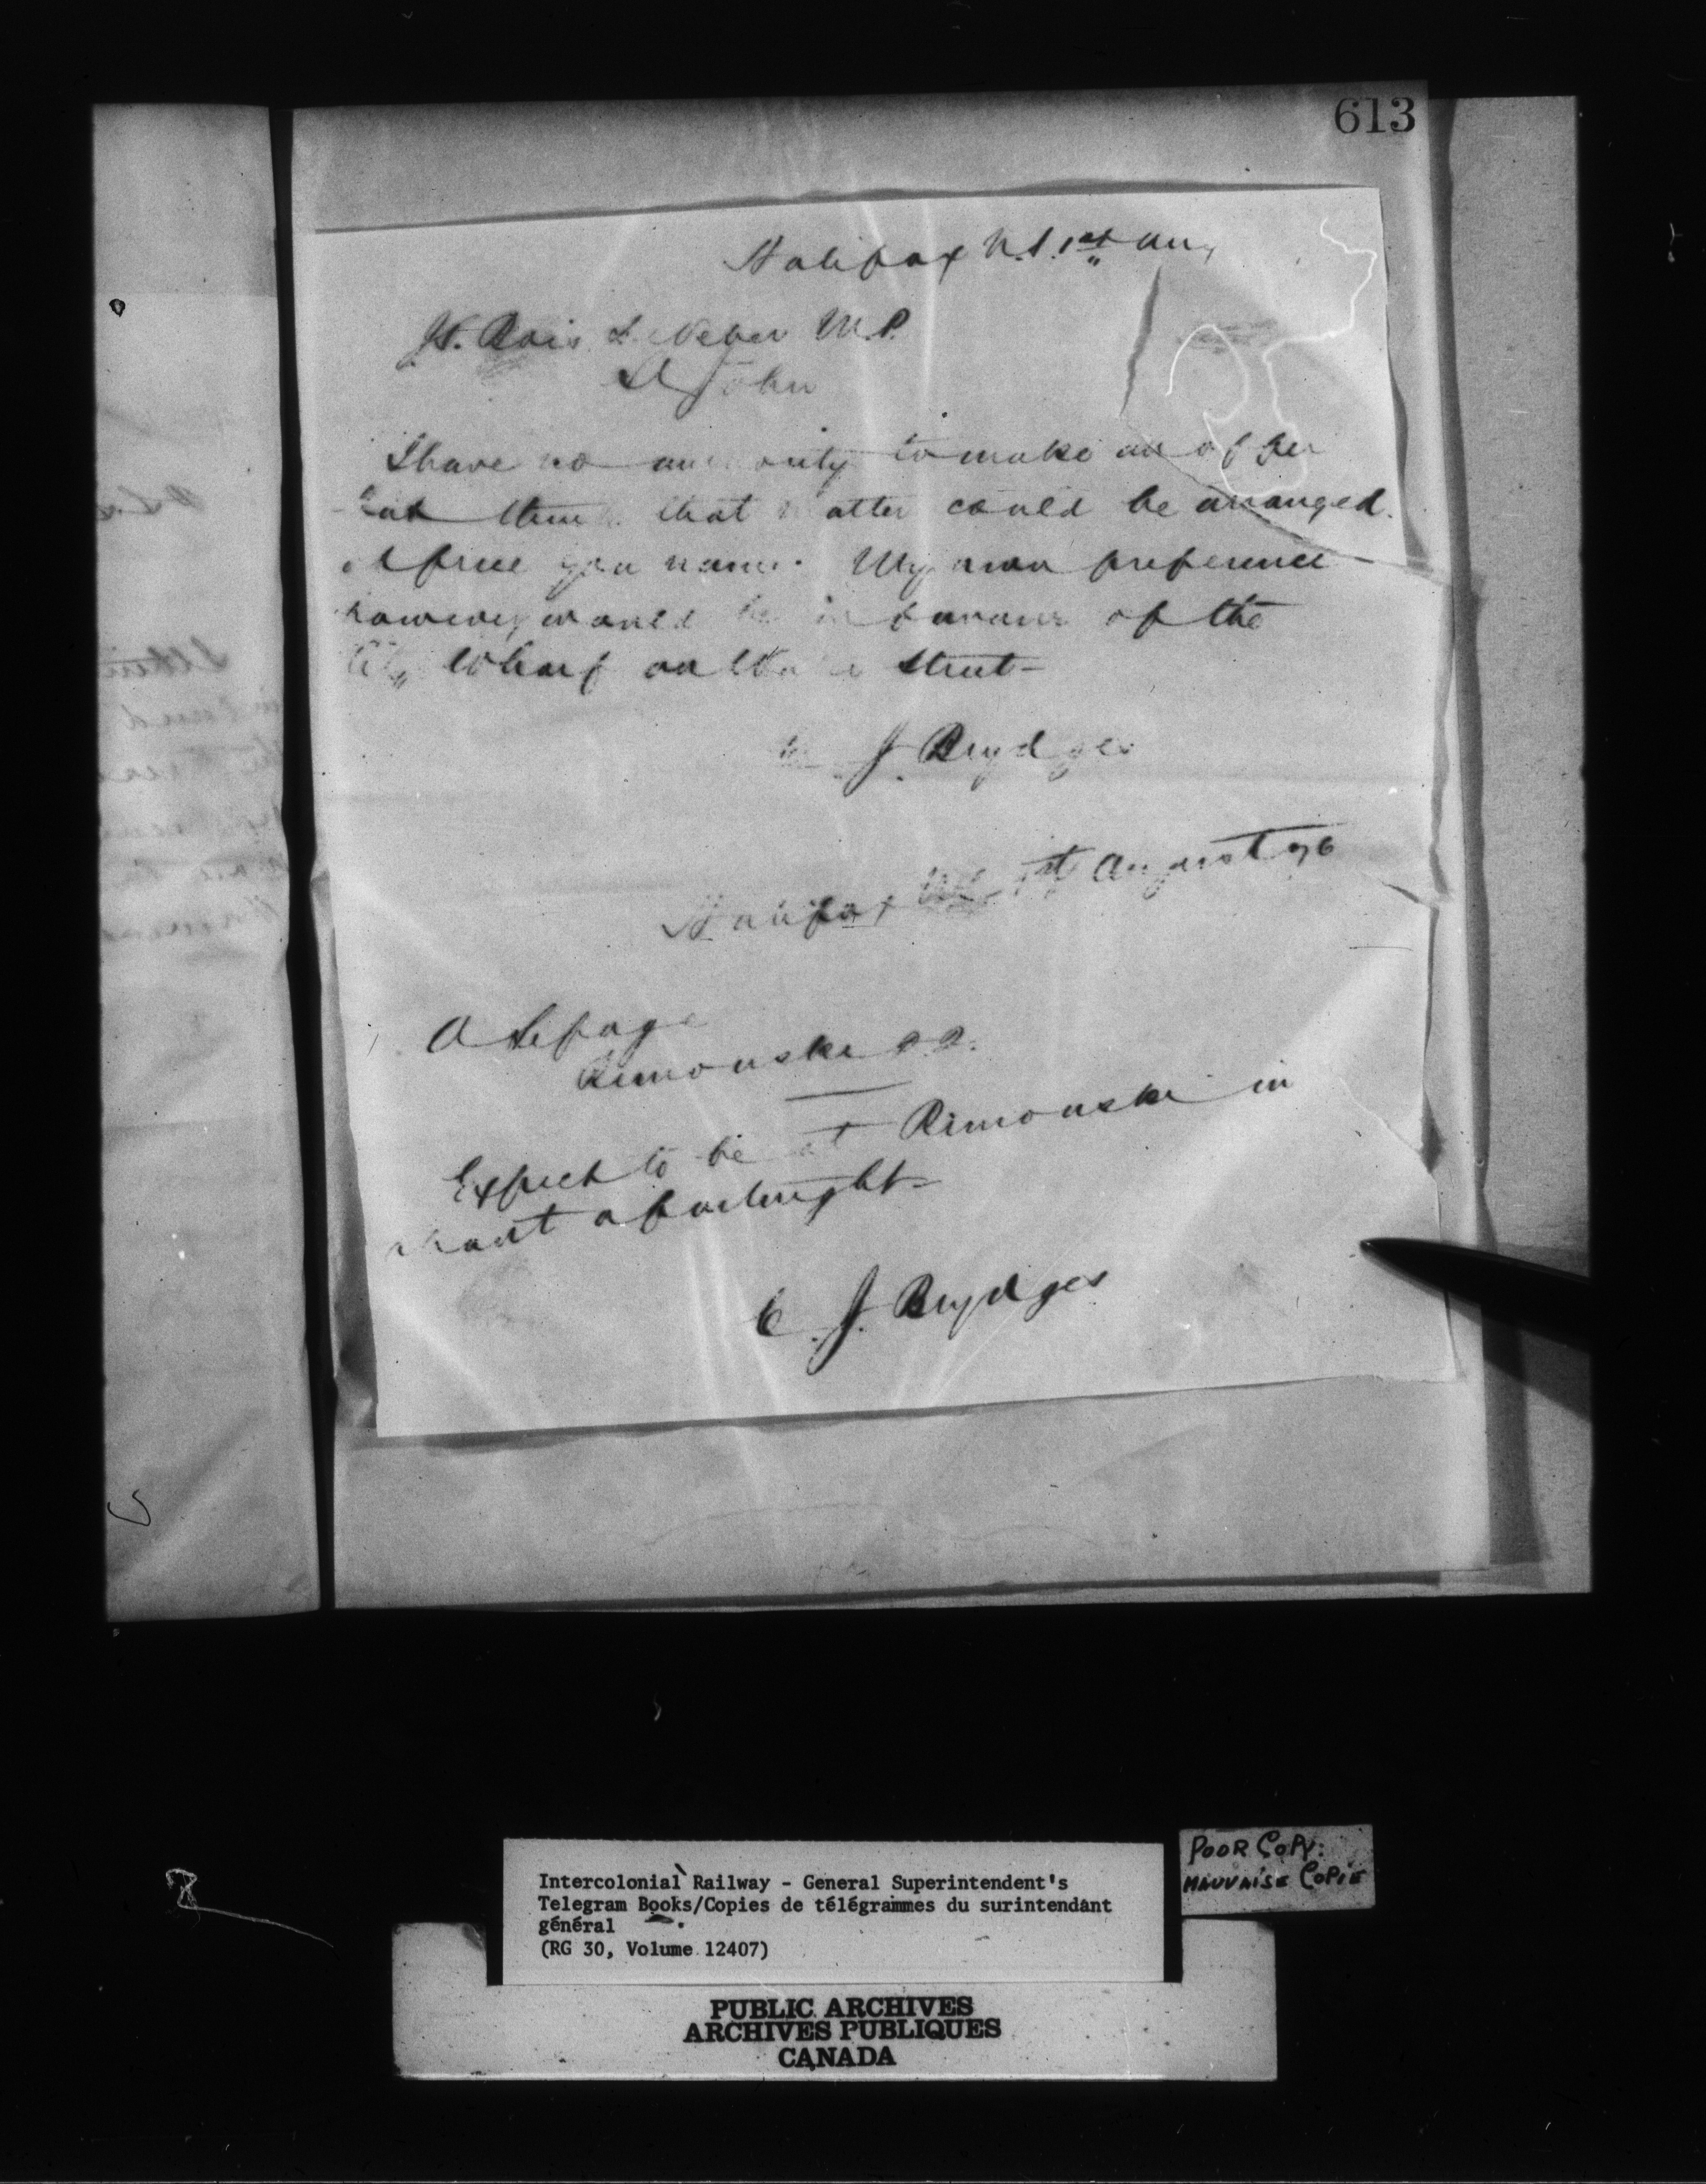 613
Halifax N.S. 1st Aug
St John
I have no authority to make an offer
but think that matter could be arranged
at price you name. My own preference
however would be in favour of the
City Wharf on Water Street –
C. J. Brydges
Halifax NS 1st August 76
A Lepage
Rimouski P.Q.
Expect to be at Rimouski in
about a fortnight –
C. J. Brydges
Intercolonial Railway - General Superintendent's
Telegram Books/Copies de télégrammes du surintendant
général
(RG 30, Volume 12407)
POOR COPY:
MAUVAISE COPIE
PUBLIC ARCHIVES
ARCHIVES PUBLIQUES
CANADA